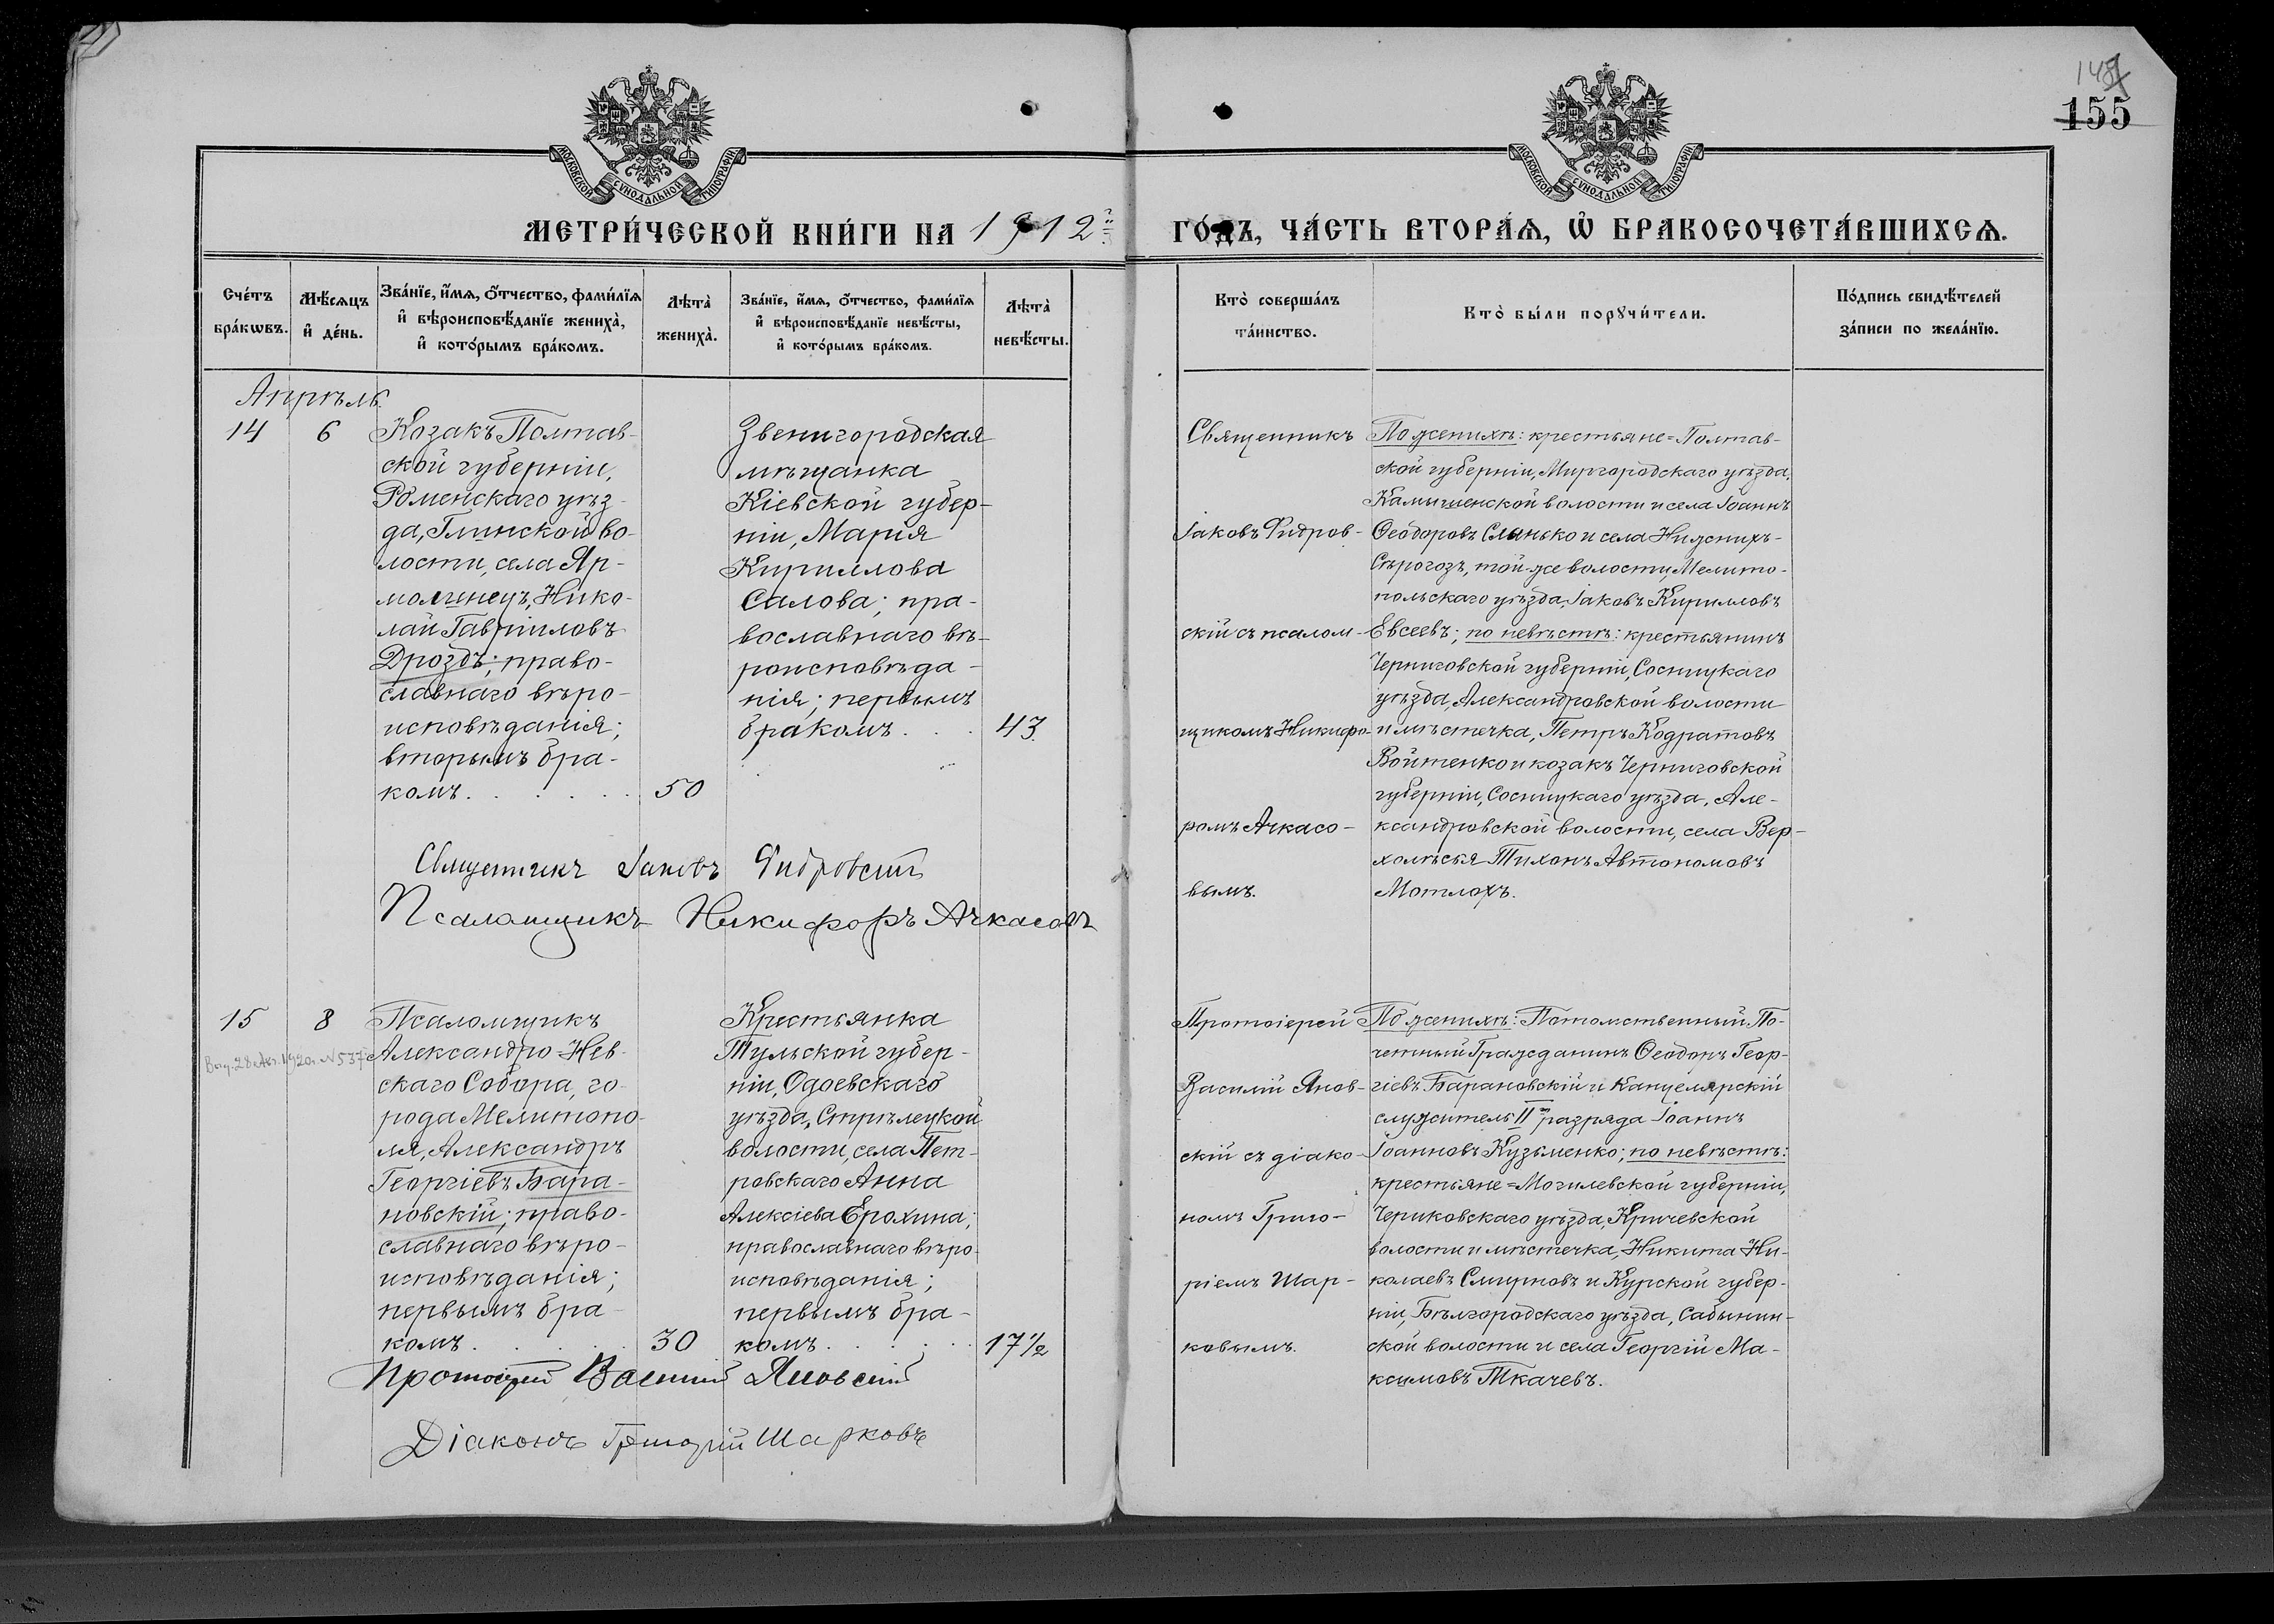 148
155
МОСКОВСКОЙ СУНОДАЛЬНОЙ ТИПОГРАФІИ
МОСКОВСКОЙ СУНОДАЛЬНОЙ ТИПОГРАФІИ
МЕТРИ́ЧЕСКОЙ КНИ́ГИ НА 1912й
ГО́ДЪ, ЧА́СТЬ ВТОРА́Ѧ, Ѡ҆ БРАКОСОЧЕТА́ВШИХСѦ.
Сче́тъ
бра́кѡвъ.
Мѣ́сѧцъ
и҆ де́нь.
Зва́нїе, и҆́мѧ, ѻ҆́тчество, фами́лїѧ
и҆ вѣроисповѣ́данїе жениха̀,
и҆ кото́рымъ бра́комъ.
Лѣта̀
жениха̀.
Зва́нїе, и҆́мѧ, ѻ҆́тчество, фами́лїѧ
и҆ вѣроисповѣ́данїе невѣ́сты,
и҆ кото́рымъ бра́комъ.
Лѣта̀
невѣ́сты.
Кто̀ соверша́лъ
та́инство.
Кто̀ бы́ли порꙋчи́тели.
По́дпись свидѣ́телей
за́писи по жела́нїю.
Апрѣль.
14
6
Козакъ Полтав-
ской губерніи,
Роменскаго уѣз-
да, Глинской во-
лости, села Яр-
молинец, Нико-
лай Гавріиловъ
Дроздъ; право-
славнаго вѣро-
исповѣданія;
вторымъ бра-
комъ. . . . . .
50
Звенигородская
мѣщанка
Кіевской губер-
ніи, Марія
Кириллова
Салова; пра-
вославнаго вѣ-
роисповѣда-
нія; первымъ
бракомъ. . .
43.
Священникъ
Іаковъ Фидров-
скій съ псалом-
щикомъ Никифо-
ромъ Ачкасо-
вымъ.
По женихѣ: крестьяне=Полтав-
ской губерніи, Миргородскаго уѣзда,
Камышенской волости и села Іоаннъ
Ѳеодоровъ Слынько и села Нижнихъ-
Сѣрогозъ, той-же волости, Мелито-
польскаго уѣзда, Іаковъ Кирилловъ
Евсеевъ; по невѣстѣ: крестьянинъ
Черниговской губерніи, Сосницкаго
уѣзда, Александровской волости
и мѣстечка, Петръ Кодратовъ
Войтенко и козакъ Черниговской
губерніи, Сосницкаго уѣзда, Але-
ксандровской волости, села Вер-
холѣсья Тихонъ Автономовъ
Мотлохъ.
Священникъ Іаковъ Фидровскій
Псаломщикъ Никифоръ Ачкасовъ
15
8
28 Авг. 1920г. № 537
Псаломщикъ
Александро-Нев-
скаго Собора, го-
рода Мелитопо-
ля, Александръ
Георгіевъ Бара-
новскій; право-
славнаго вѣро-
исповѣданія;
первымъ бра-
комъ. . . . .
30
Крестьянка
Тульской губер-
ніи, Одоевскаго
уѣзда, Стрѣлецкой
волости, села Пет-
ровскаго Анна
Алексіева Ерохина;
православнаго вѣро-
исповѣданія;
первымъ бра-
комъ. . . . .
17 1/2
Протоіерей
Василій Янов-
скій съ діако-
номъ Григо-
ріемъ Шар-
ковымъ.
По женихѣ: Потомственный По-
четный Гражданинъ Ѳеодоръ Геор-
гіевъ Барановскій и Канцелярскій
служитель II разряда Іоаннъ
Іоанновъ Кузьменко; по невѣстѣ:
крестьяне=Могилевской губерніи,
Чериковскаго уѣзда, Кричевской
волости и мѣстечка, Никита Ни-
колаевъ Смирновъ и Курской губер-
ніи, Бѣлгородскаго уѣзда, Сабынин-
ской волости и села Георгій Ма-
ксимовъ Ткачевъ.
Протоіерей Василій Яновскій
Діаконъ Григорій Шарковъ